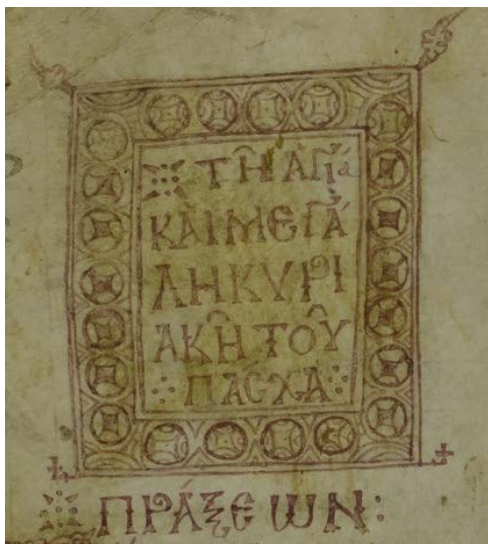 ※ ΤΗ͂ ἉΓΊΑ
ΚΑῚ ΜΕΓΆ
ΛΗ ΚΥΡΙ
ΑΚΗ͂ ΤΟΥ͂
⁘ ΠΆΣΧΑ ⁘
※ ΠΡΆΞΕΩΝ: